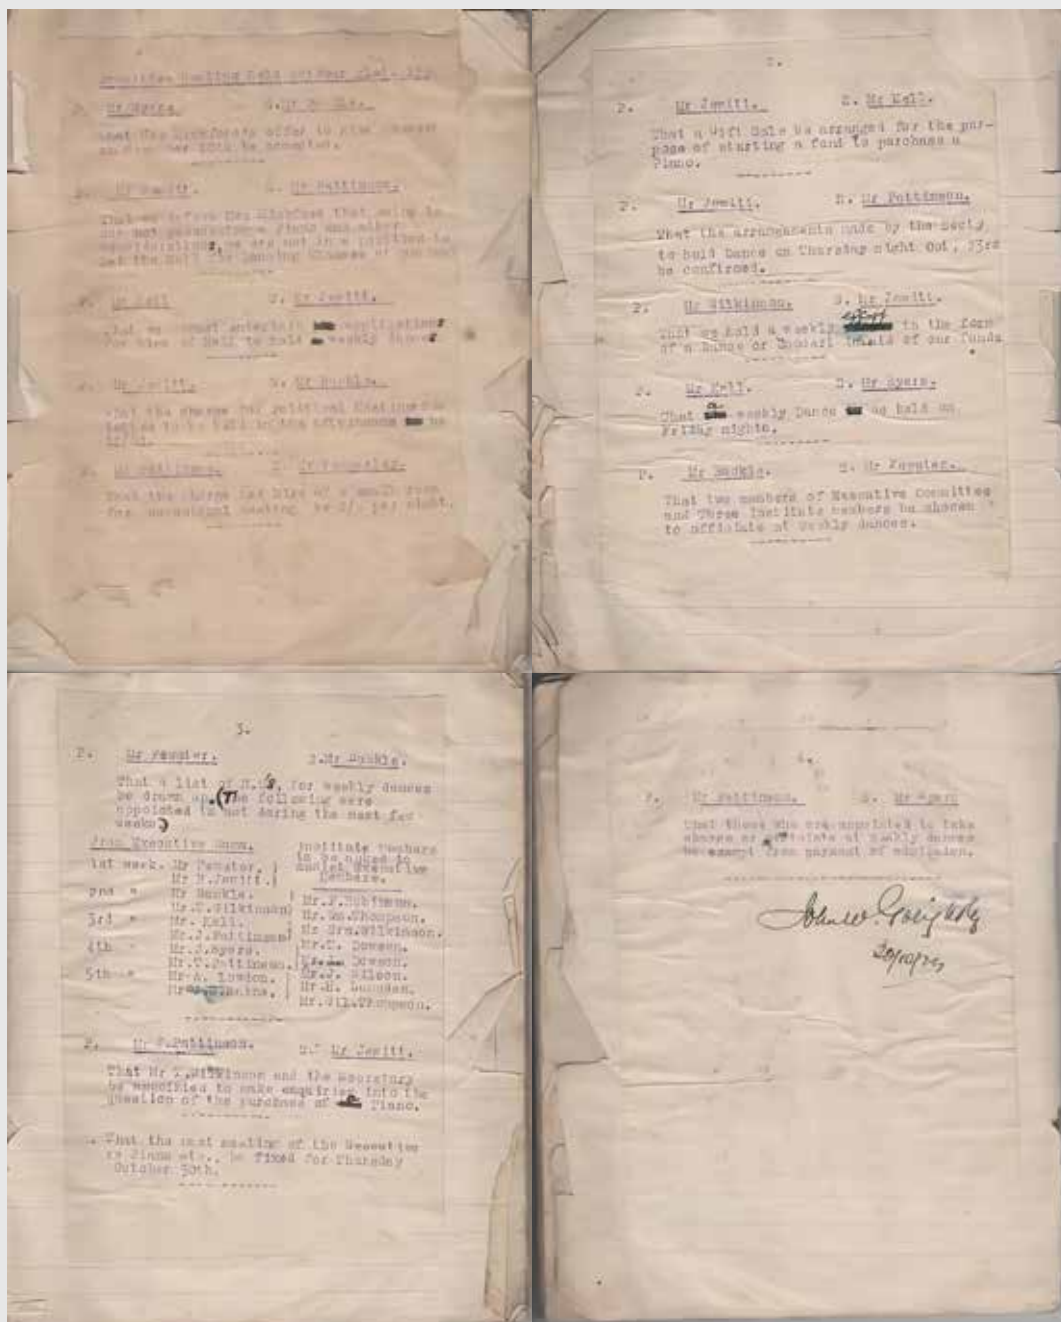 Committee Meeting Held
P. Mr Myers. S. Mr
offer to give
be accepted.
P. Mr Jewitt. S. Mr Pattinson.
That we inform Mrs that owing to
our not possessing a Piano and other
considerations, we are not in a position to
let the Hall for Dancing Classes at present
P. Mr Kell S. Mr Jewitt.
That we cannot entertain applications
for hire of Hall to hold weekly dances
P. Mr Jewitt. S. Mr Buckle.
That the charge for political Meetings
to be held in the afternoons be
P. Mr Pattinson. S. Mr
That the charge for hire of a small room
for occasional meeting be 2/- per night.
2.
P. Mr Jewitt. S. Mr Kell.
That a Gift Sale be arranged for the pur-
pose of starting a fund to purchase a
Piano.
P. Mr Jewitt. S. Mr Pattinson.
That the arrangements made by the Secty
to hold Dance on Thursday night Oct. 23rd
be confirmed.
P. Mr Wilkinson. S. Mr Jewitt.
effort
That we hold a weekly in the form
of a Dance or Social in aid of our funds
P. Mr Kell. S. Mr Myers.
That a weekly Dance be held on
Friday nights.
P. Mr Buckle. S. Mr Forster.
That two members of Executive Committee
and Three Institute members be chosen
to officiate at weekly dances.
3.
P. Mr Forster. S. Mr Buckle.
That a list of M.C's, for weekly dances
be drawn up. (The following were
appointed to act during the next few
weeks)
From Executive Comm. Institute members
to be asked to
1st week. Mr Forster. assist Executive
Mr H. Jewitt. Members.
2nd " Mr Buckle. Mr. F. Robinson.
Mr. T. Wilkinson Mr. Wm. Thompson.
3rd " Mr. Kell. Mr Geo. Wilkinson.
Mr. J. Pattinson Mr. T. Dowson.
4th " Mr. J. Myers. Dowson.
Mr. T. Pattinson. Mr. J. Wilson.
5th " Mr. A. Lowdon. Mr. H. Lumsden.
Mr. Wil. Thompson.
P. Mr J. Pattinson. S. Mr Jewitt.
That Mr T. Wilkinson and the Secretary
be appointed to make enquiries into the
question of the purchase of a Piano.
That the next meeting of the Executive
re Piano etc., be fixed for Thursday
October 30th.
4.
P. Mr Pattinson. S. Mr Myers
That those who are appointed to take
charge or officiate at weekly dances
be exempt from payment of admission.
John W. Golightly